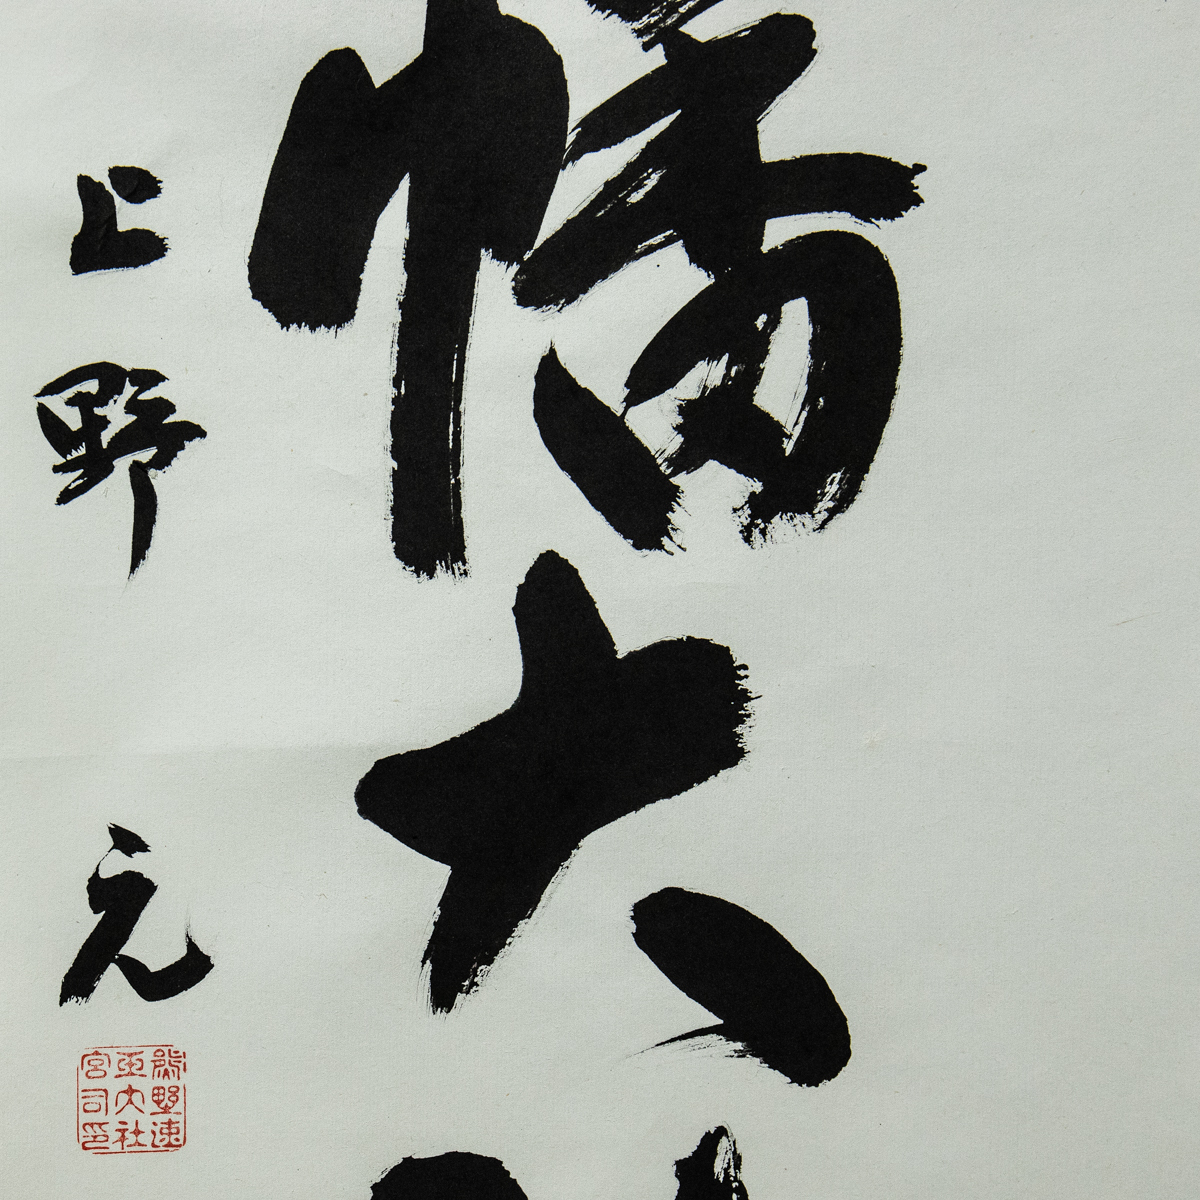 幡大
上野元
熊野速
玉大社
宮司印